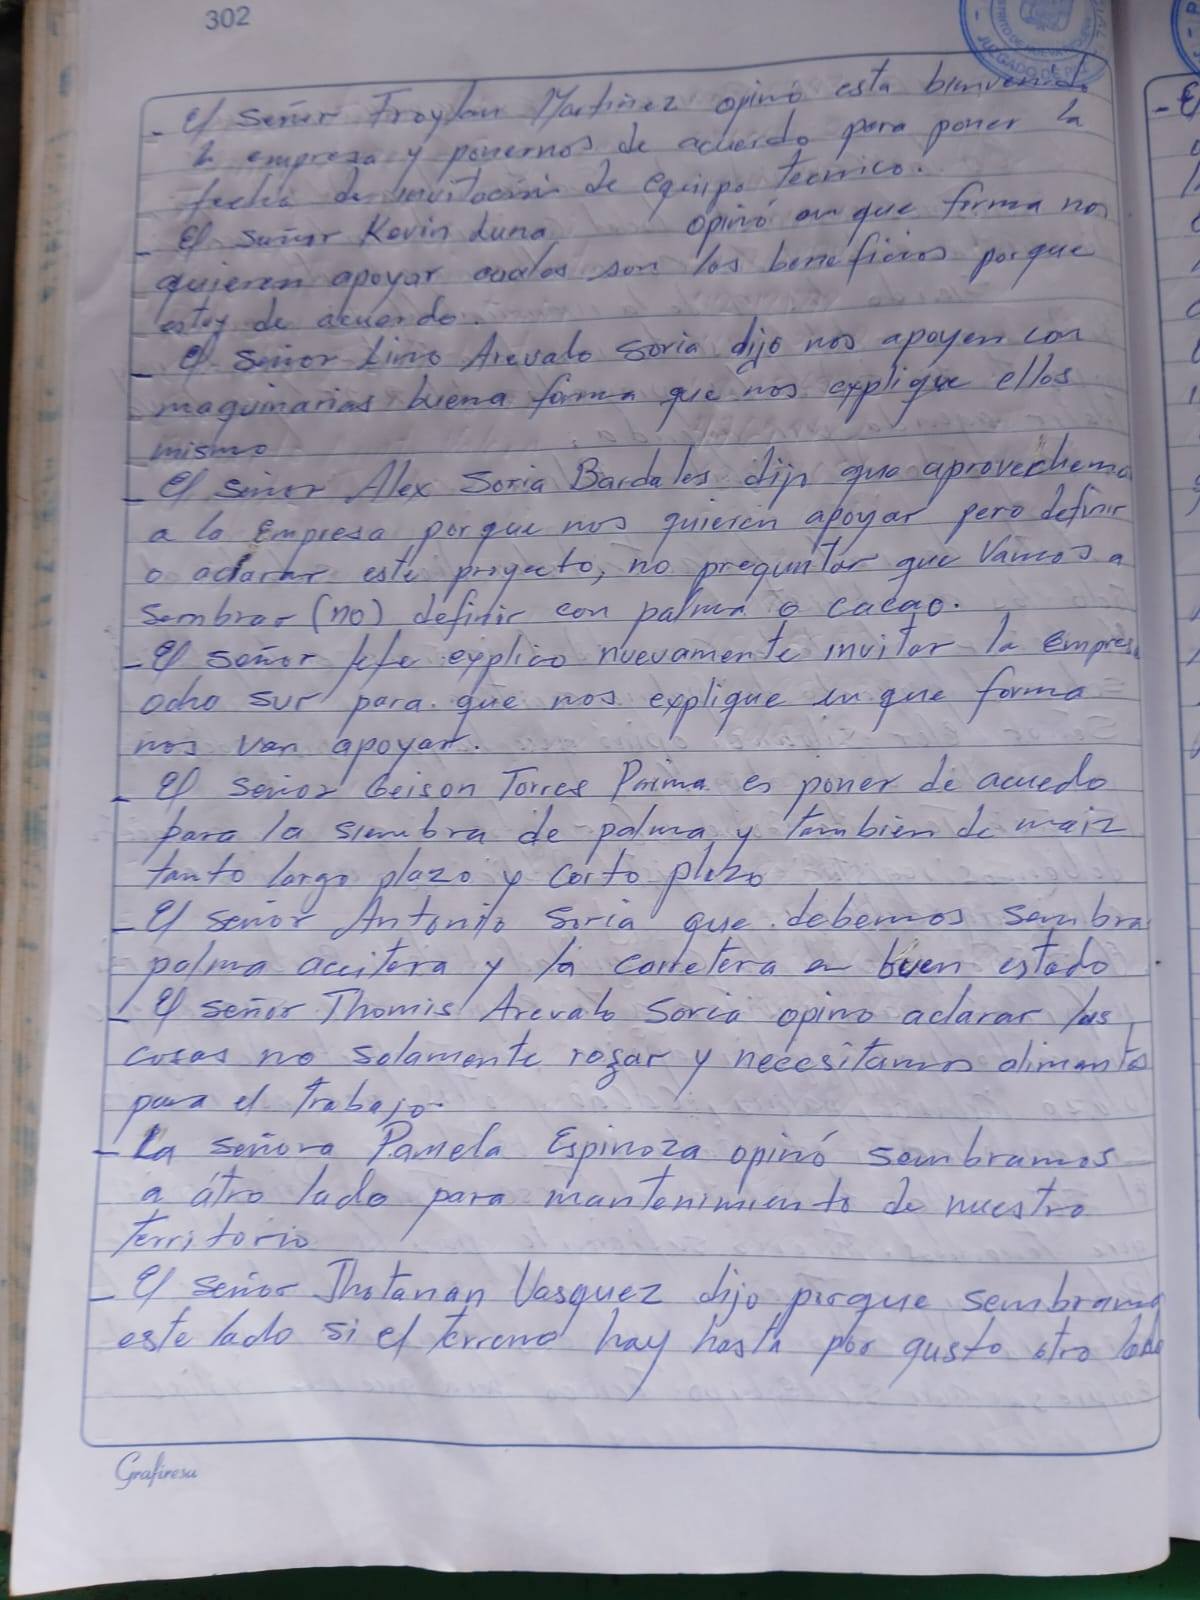 302
JUZGADO DE PAZ
- El señor Froylan Martinez opinó esta bienvenido
la empresa y ponernos de acuerdo para poner la
fecha de invitacion de equipo tecnico.
- El señor Kevin Luna opinó en que forma nos
quieren apoyar cuales son los beneficios porque
estoy de acuerdo.
- El señor Lino Arevalo Soria dijo nos apoyen con
maquinarias buena forma que nos explique ellos
mismo
- El señor Alex Soria Bardales dijo que aprovechemo
a la Empresa porque nos quieren apoyar pero definir
o aclarar este proyecto, no preguntar que Vamos a
Sembrar (no) definir con palma o cacao.
- El señor Jefe explico nuevamente invitar la Empresa
ocho sur para que nos explique en que forma
nos van apoyar.
- El señor Geison Torres Prima es poner de acuedo
para la siembra de palma y tambien de maiz
tanto largo plazo y corto plazo
- El señor Antonio Soria que debemos sembra
palma aceitera y la carretera en buen estado
- El señor Thomis Arevalo Soria opino aclarar las
cosas no solamente rozar y necesitamos alimento
para el trabajo.
- La señora Pamela Espinoza opinó sembramos
a otro lado para mantenimiento de nuestro
territorio
- El señor Jhotanan Vasquez dijo porque sembramo
este lado si el terreno hay hasta por gusto otro lado
Grafiresa